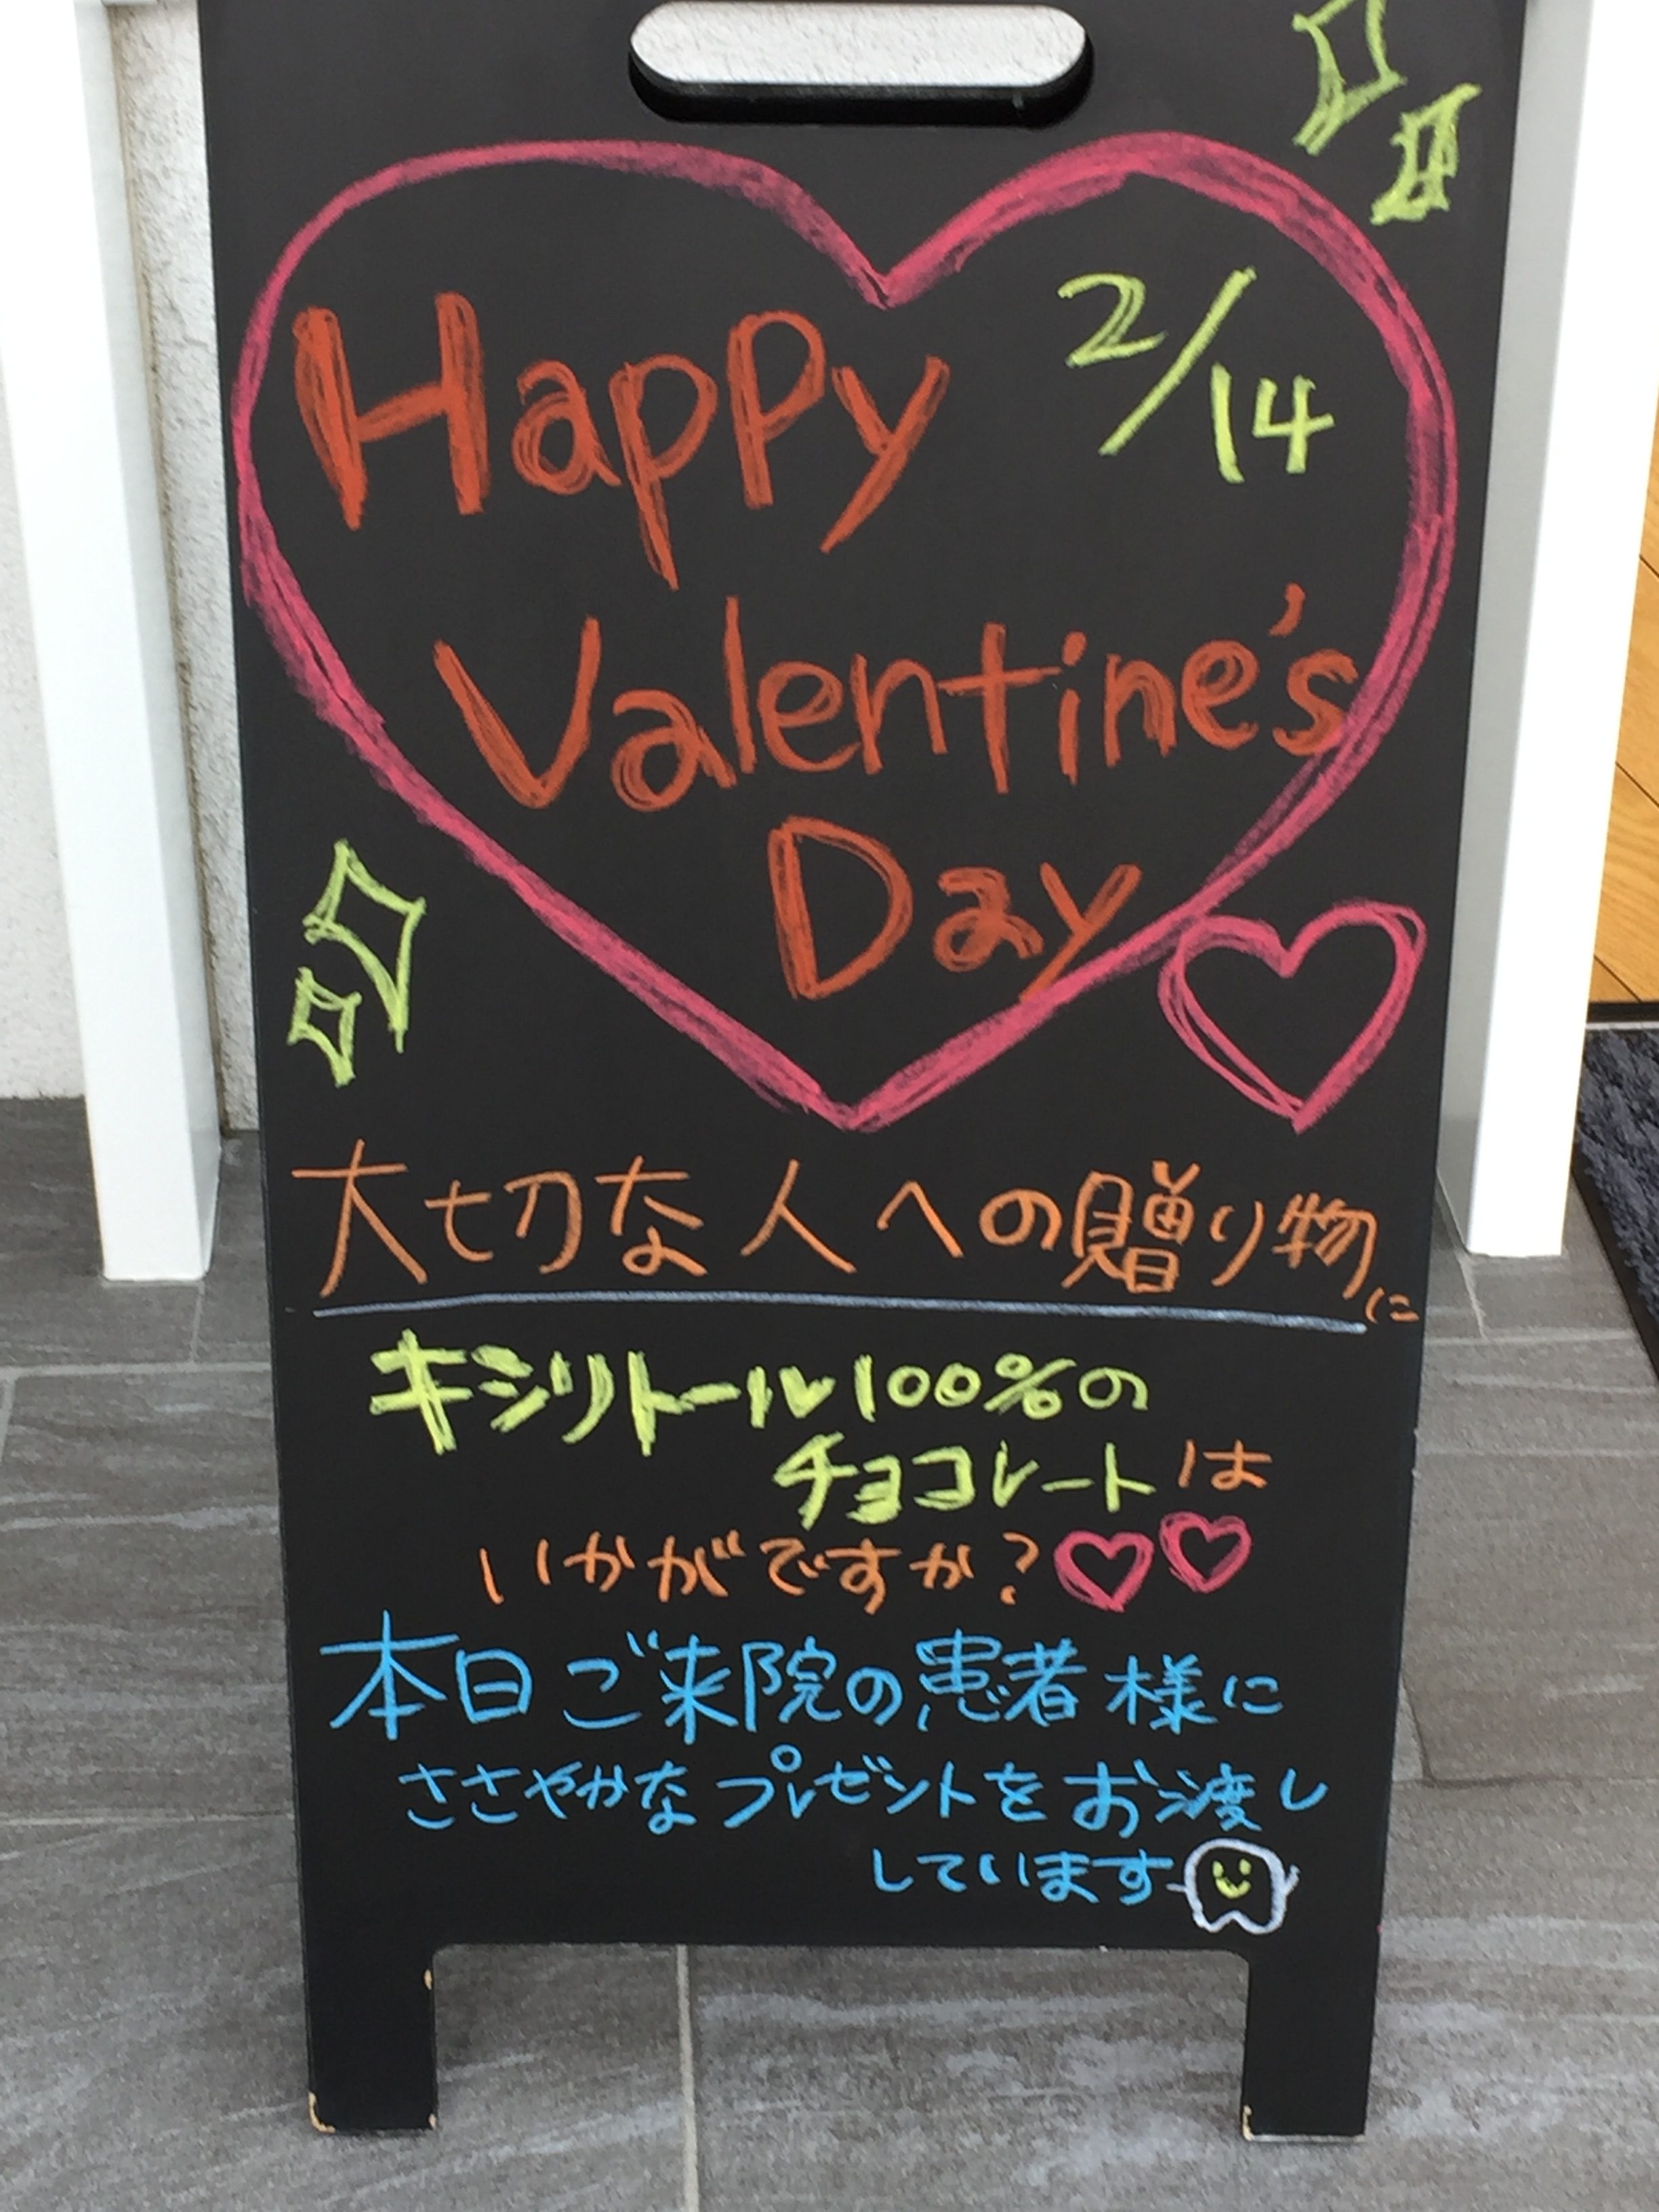 2/14
Happy
Valentine's
Day
大切な人への贈り物に
キシリトール100%の
チョコレートは
いかがですか?
本日ご来院の患者様に
ささやかなプレゼントをお渡し
しています